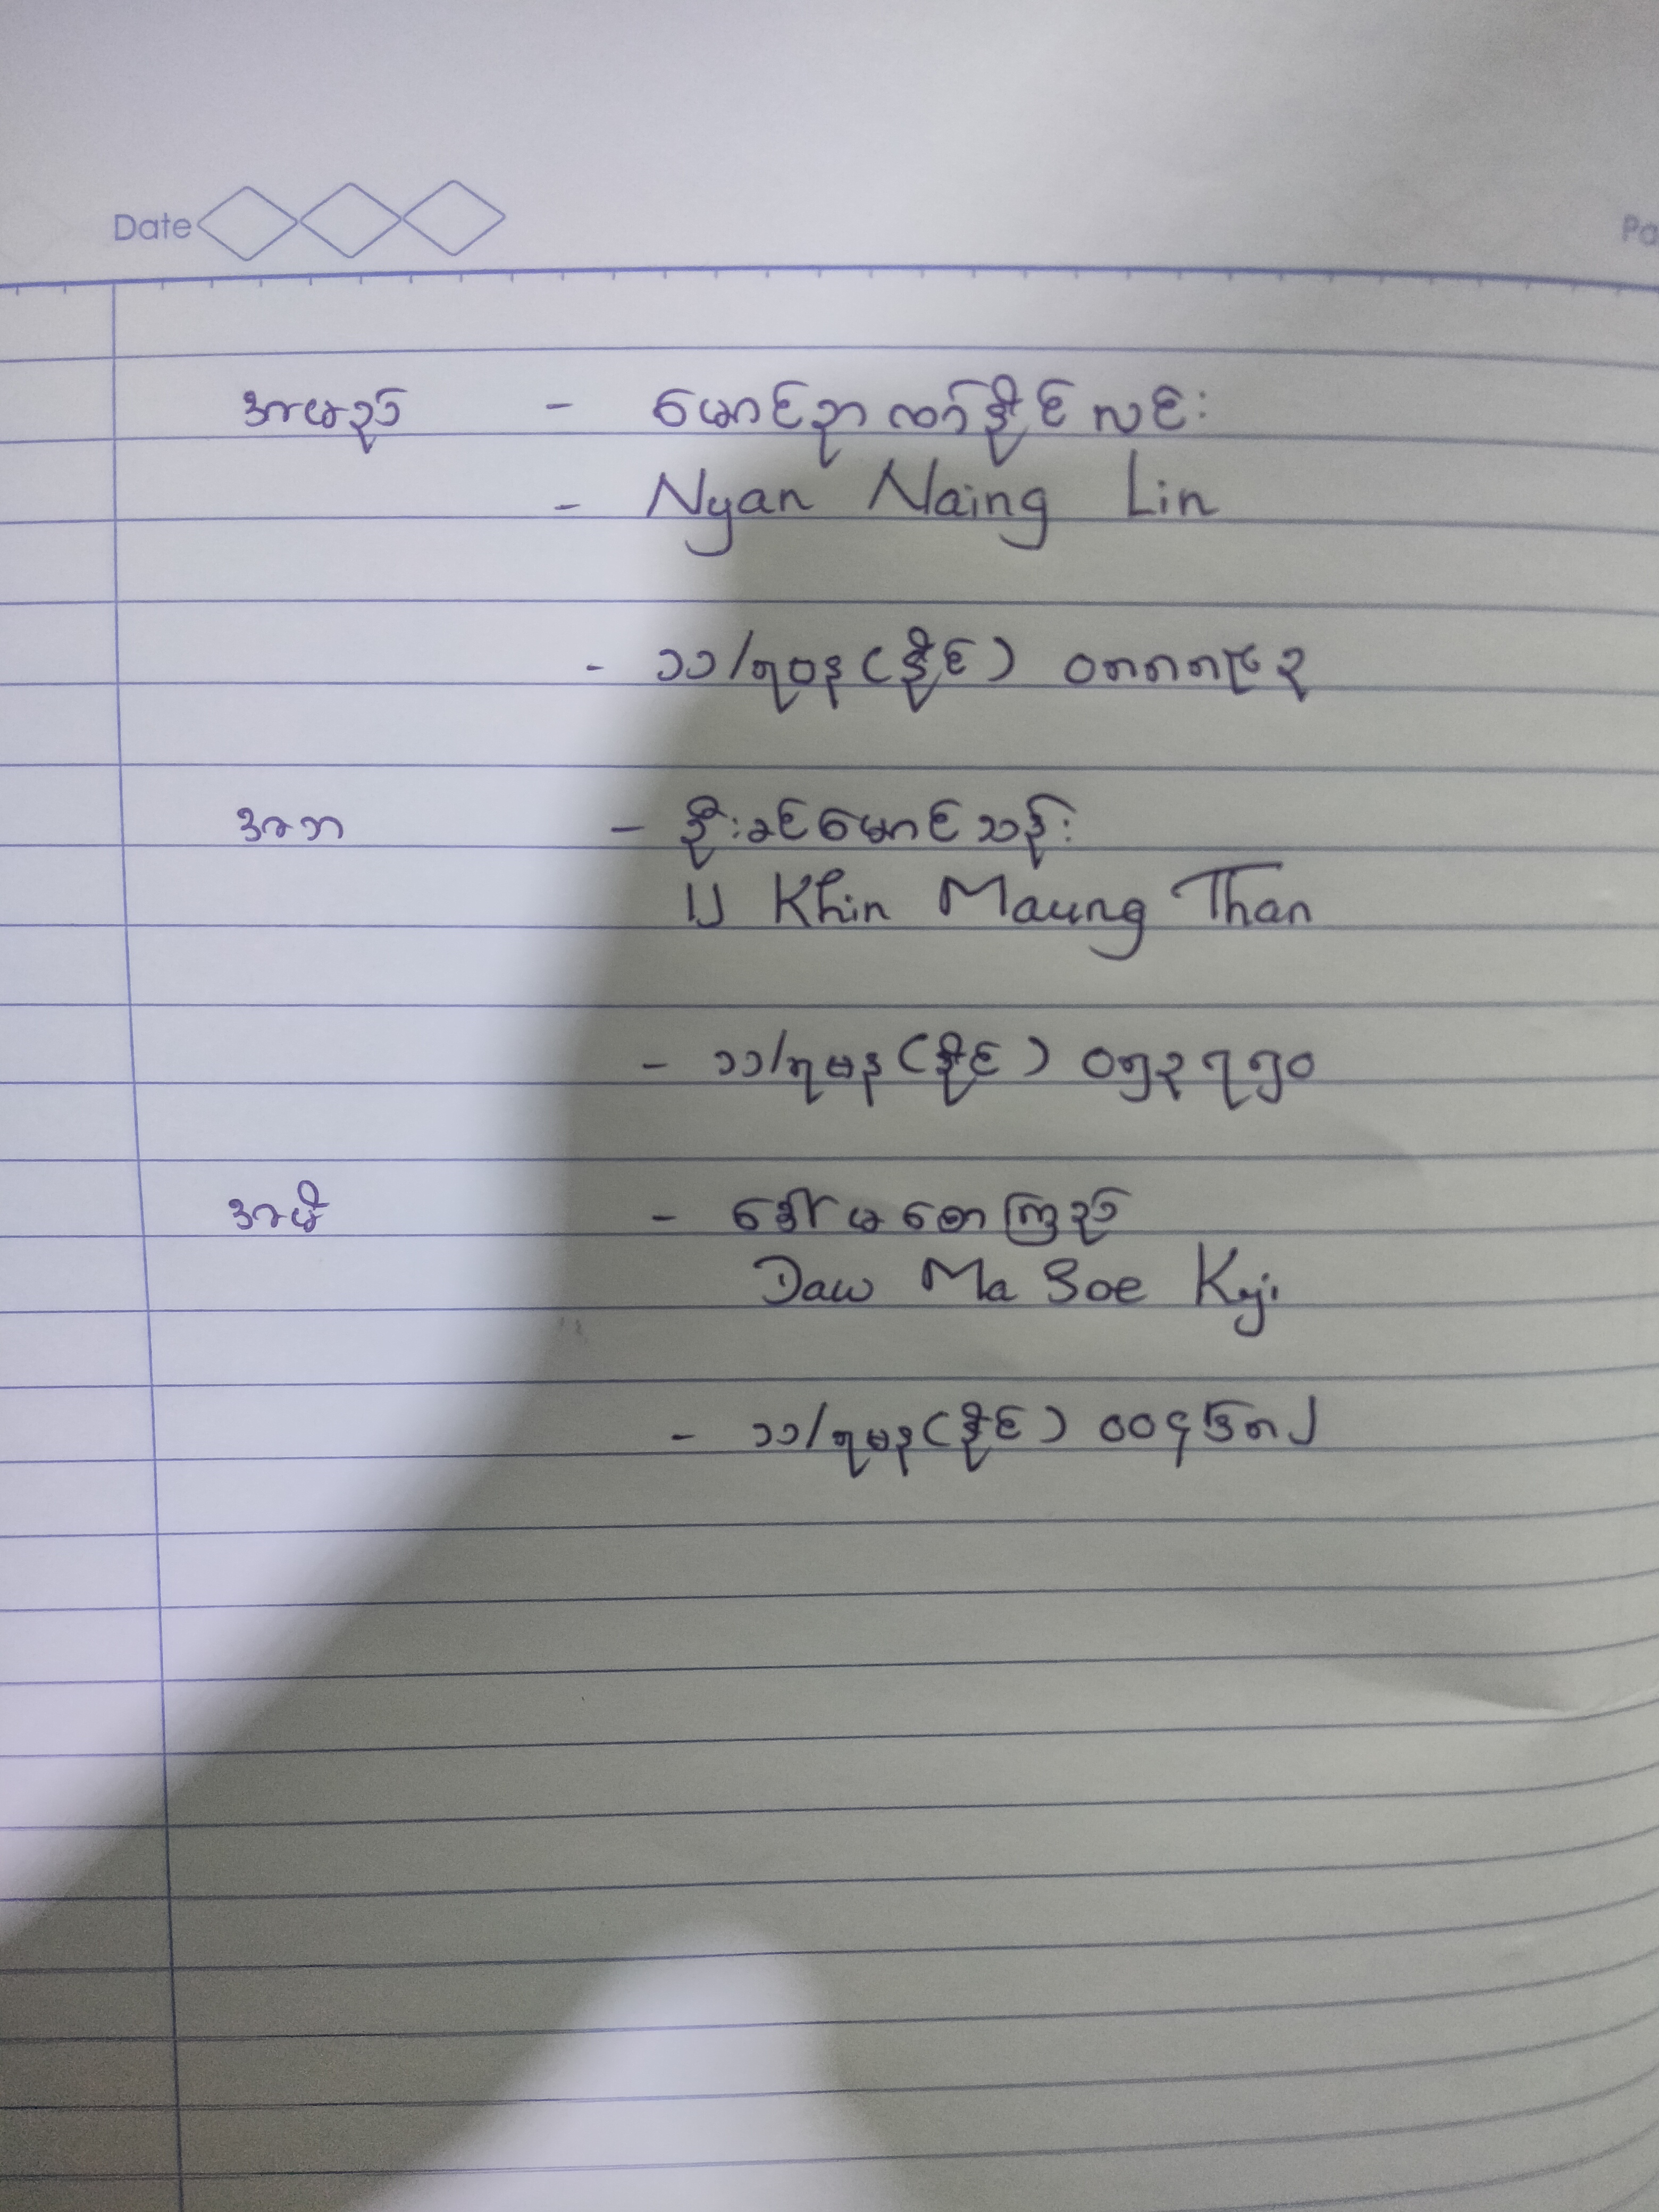 Date
အမည် - မောင်ဉာဏ်နိုင်လင်း
- Nyan Naing Lin
- ၁၁/ရပန(နိုင်) ၀၈၈၈၉၃
အဘ - ဦးခင်မောင်သန်း
U Khin Maung Than
- ၁၁/ရမန(နိုင်) ၀၅၃၇၅၀
အမိ - ဒေါ်မစောကြည်
Daw Ma Soe Kyi
- ၁၁/ရမန(နိုင်)